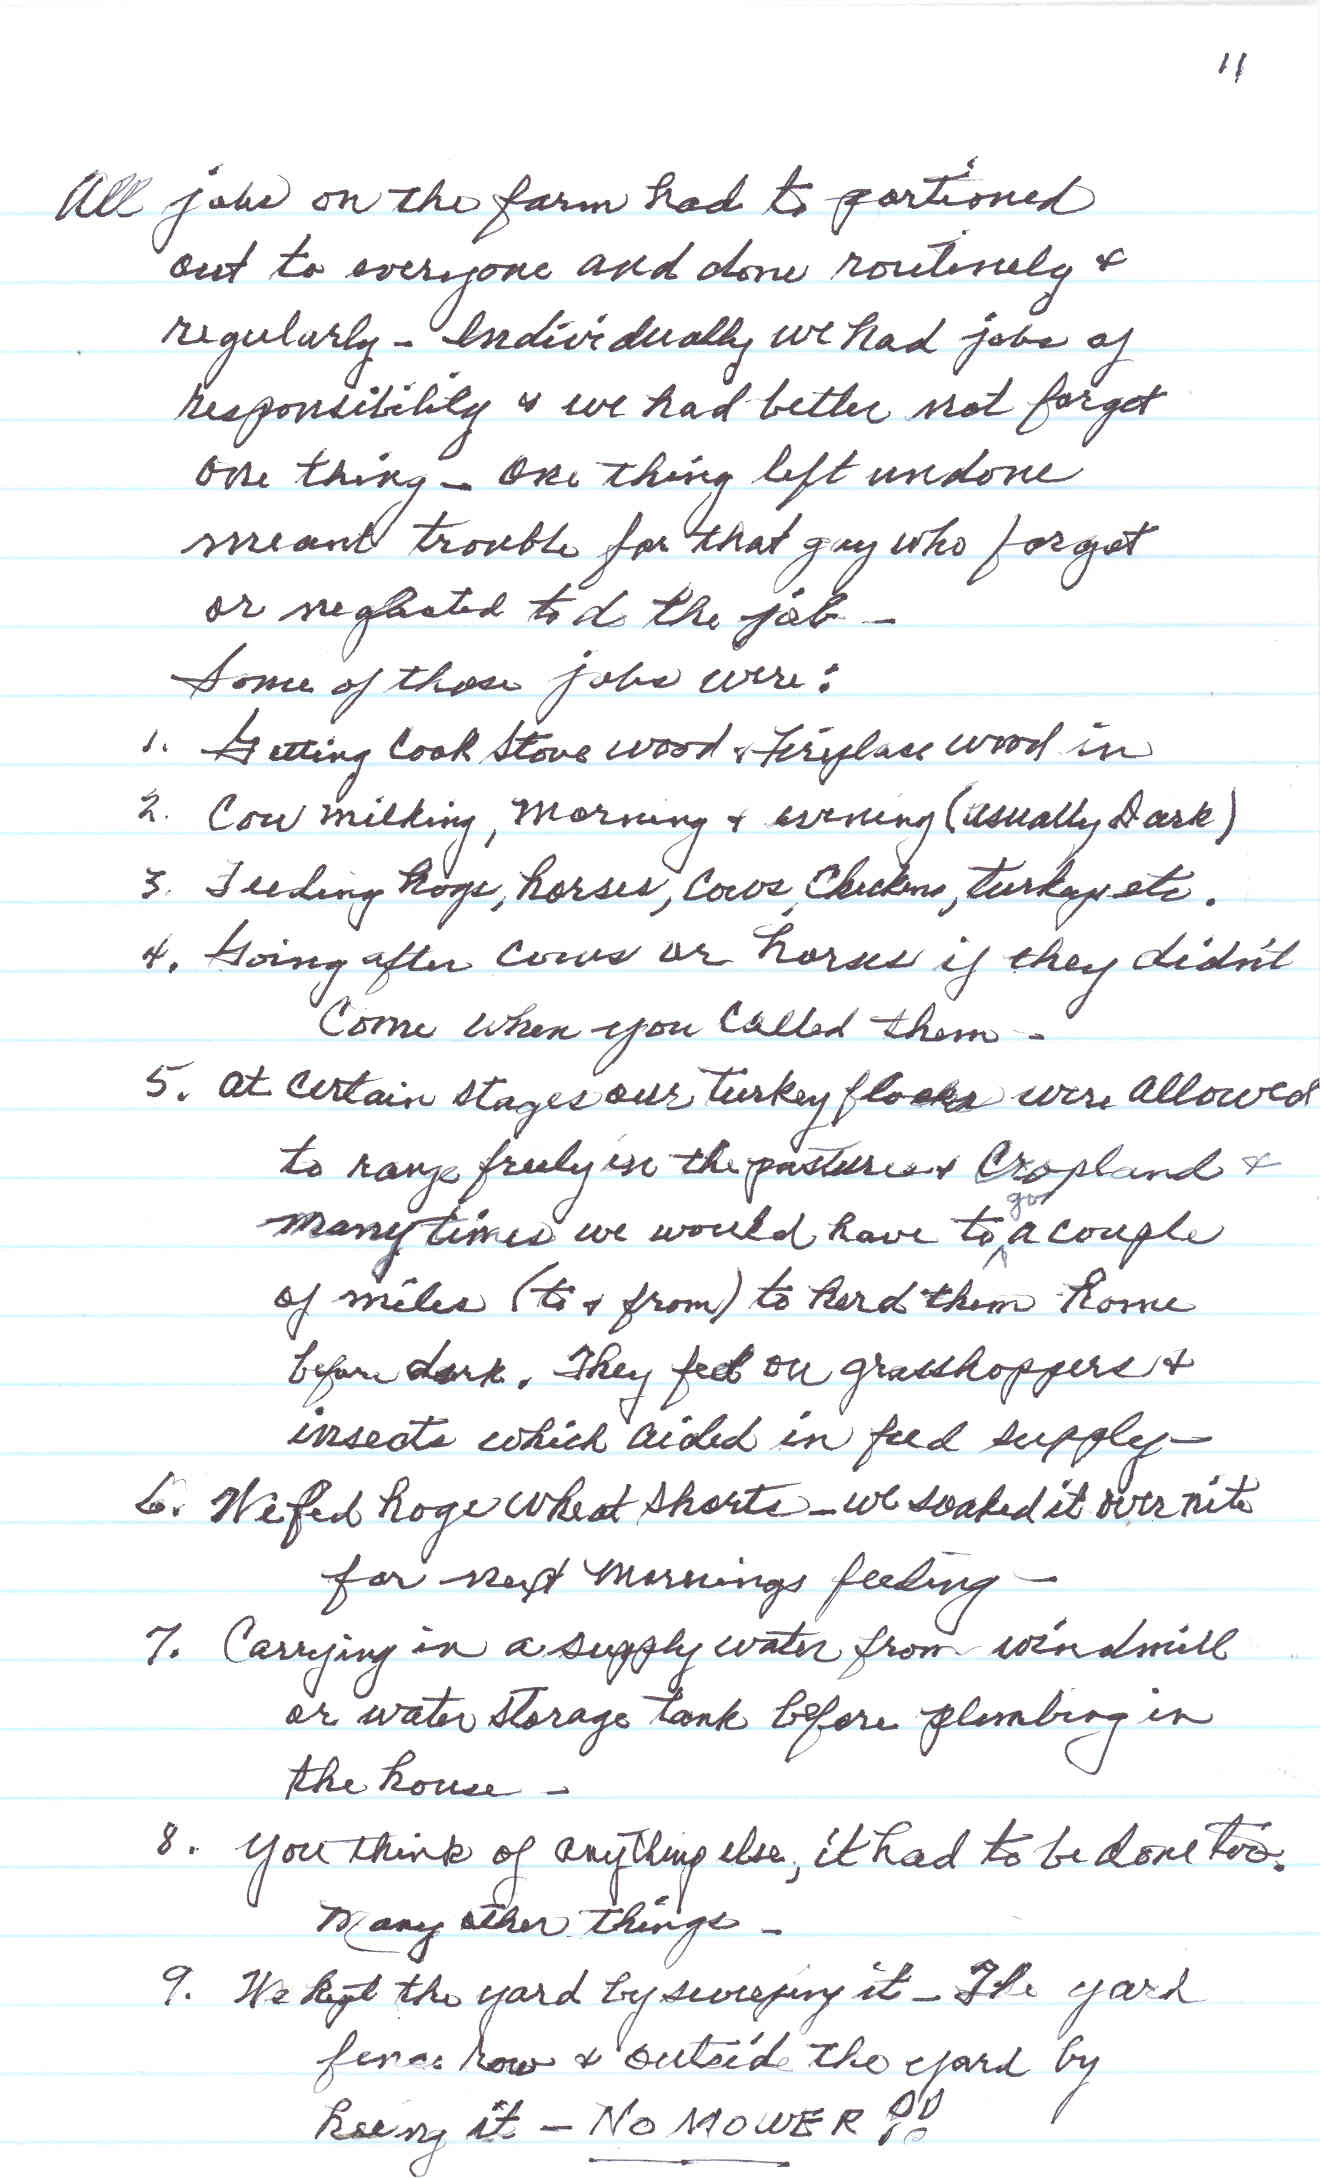 11
All jobs on the farm had to portioned
out to everyone and done routinely &
regularly - Individually we had jobs of
responsibility & we had better not forget
one thing - One thing left undone
meant trouble for that guy who forgot
or neglected to d the job -
Some of those jobs were:
1. Getting Cook Stove wood & Fireplace wood in
2. Cow milking, Morning & evening (usually Dark)
3. Feeding hogs, horses, cows, Chickens, turkeys etc.
4. Going after cows or horses if they didn't
Come when you Called them -
5. At certain stages our turkey flocks were allowed
to range freely in the pastures & Cropland &
many times we would have to go a couple
of miles (to & from) to herd them home
before dark. They feed on grasshoppers &
insects which aided in feed supply -
6. We fed hogs wheat shorts - we soaked it over nite
for next Mornings feeding -
7. Carrying in a supply water from windmill
or water storage tank before plumbing in
the house -
8. You think of anything else, it had to be done too.
Many other things -
9. We kept the yard by sweeping it - The yard
fence row & outside the yard by
hoeing it - NO MOWER !!